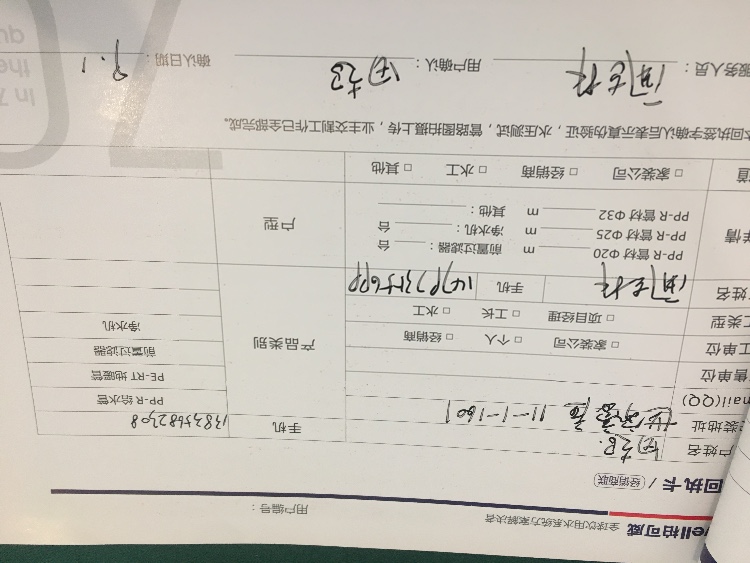 ell柏可威 全球饮用水系统方案解决者
用户编号：
回执卡 / 经销商联
户姓名 手机 13835682308
装地址 11-1-1601
mail(QQ)
售单位
工单位 □ 家装公司 □ 个人 □ 经销商
工类型 □ 项目经理 □ 工长 □ 水工
姓名 手机
产品类别
PP-R 给水管
PE-RT 地暖管
前置过滤器
净水机
详情
PP-R 管材 Φ20 m 前置过滤器： 台
PP-R 管材 Φ25 m 净水机： 台
PP-R 管材 Φ32 m 其他：
户型
道 □ 家装公司 □ 经销商 □ 水工 □ 其他
本回执签字确认后表示真伪验证，水压测试，管路图拍摄上传，业主交割工作已全部完成。
服务人员： 用户确认： 确认日期： 9.1
In
the
qu